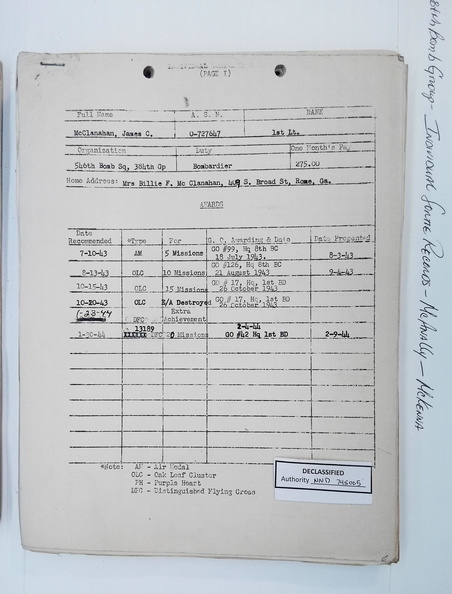 (PAGE I)
Full Name A. S. N. RANK
McClanahan, James C. O-727647 1st Lt.
Organization Duty One Month's Pay
546th Bomb Sq, 384th Gp Bombardier 275.00
Home Address: Mrs Billie F. Mc Clanahan, 408 S. Broad St, Rome, Ga.
AWARDS
Date Recommended *Type For G. O, Awarding & Date Date Presented
7-10-43 AM 5 Missions GO #99, Hq 8th BC 18 July 1943. 8-3-43
8-13-43 OLC 10 Missions GO #126, Hq 8th BC 21 August 1943 9-4-43
10-15-43 OLC 15 Missions GO # 17, Hq, 1st BD 26 October 1943
10-20-43 OLC E/A Destroyed GO # 17, Hq, 1st BD 26 October 1943
1-23-44 DFC Extra Achievement
13189 2-4-44
1-30-44 DFC 20 Missions GO #42 Hq 1st BD 2-9-44
*Note: AM - Air Medal
OLC - Oak Leaf Cluster
PH - Purple Heart
DFC - Distinguished Flying Cross
DECLASSIFIED
Authority NND 745005
384th Bomb Group - Individual Sortie Records - McAnally - McKenna